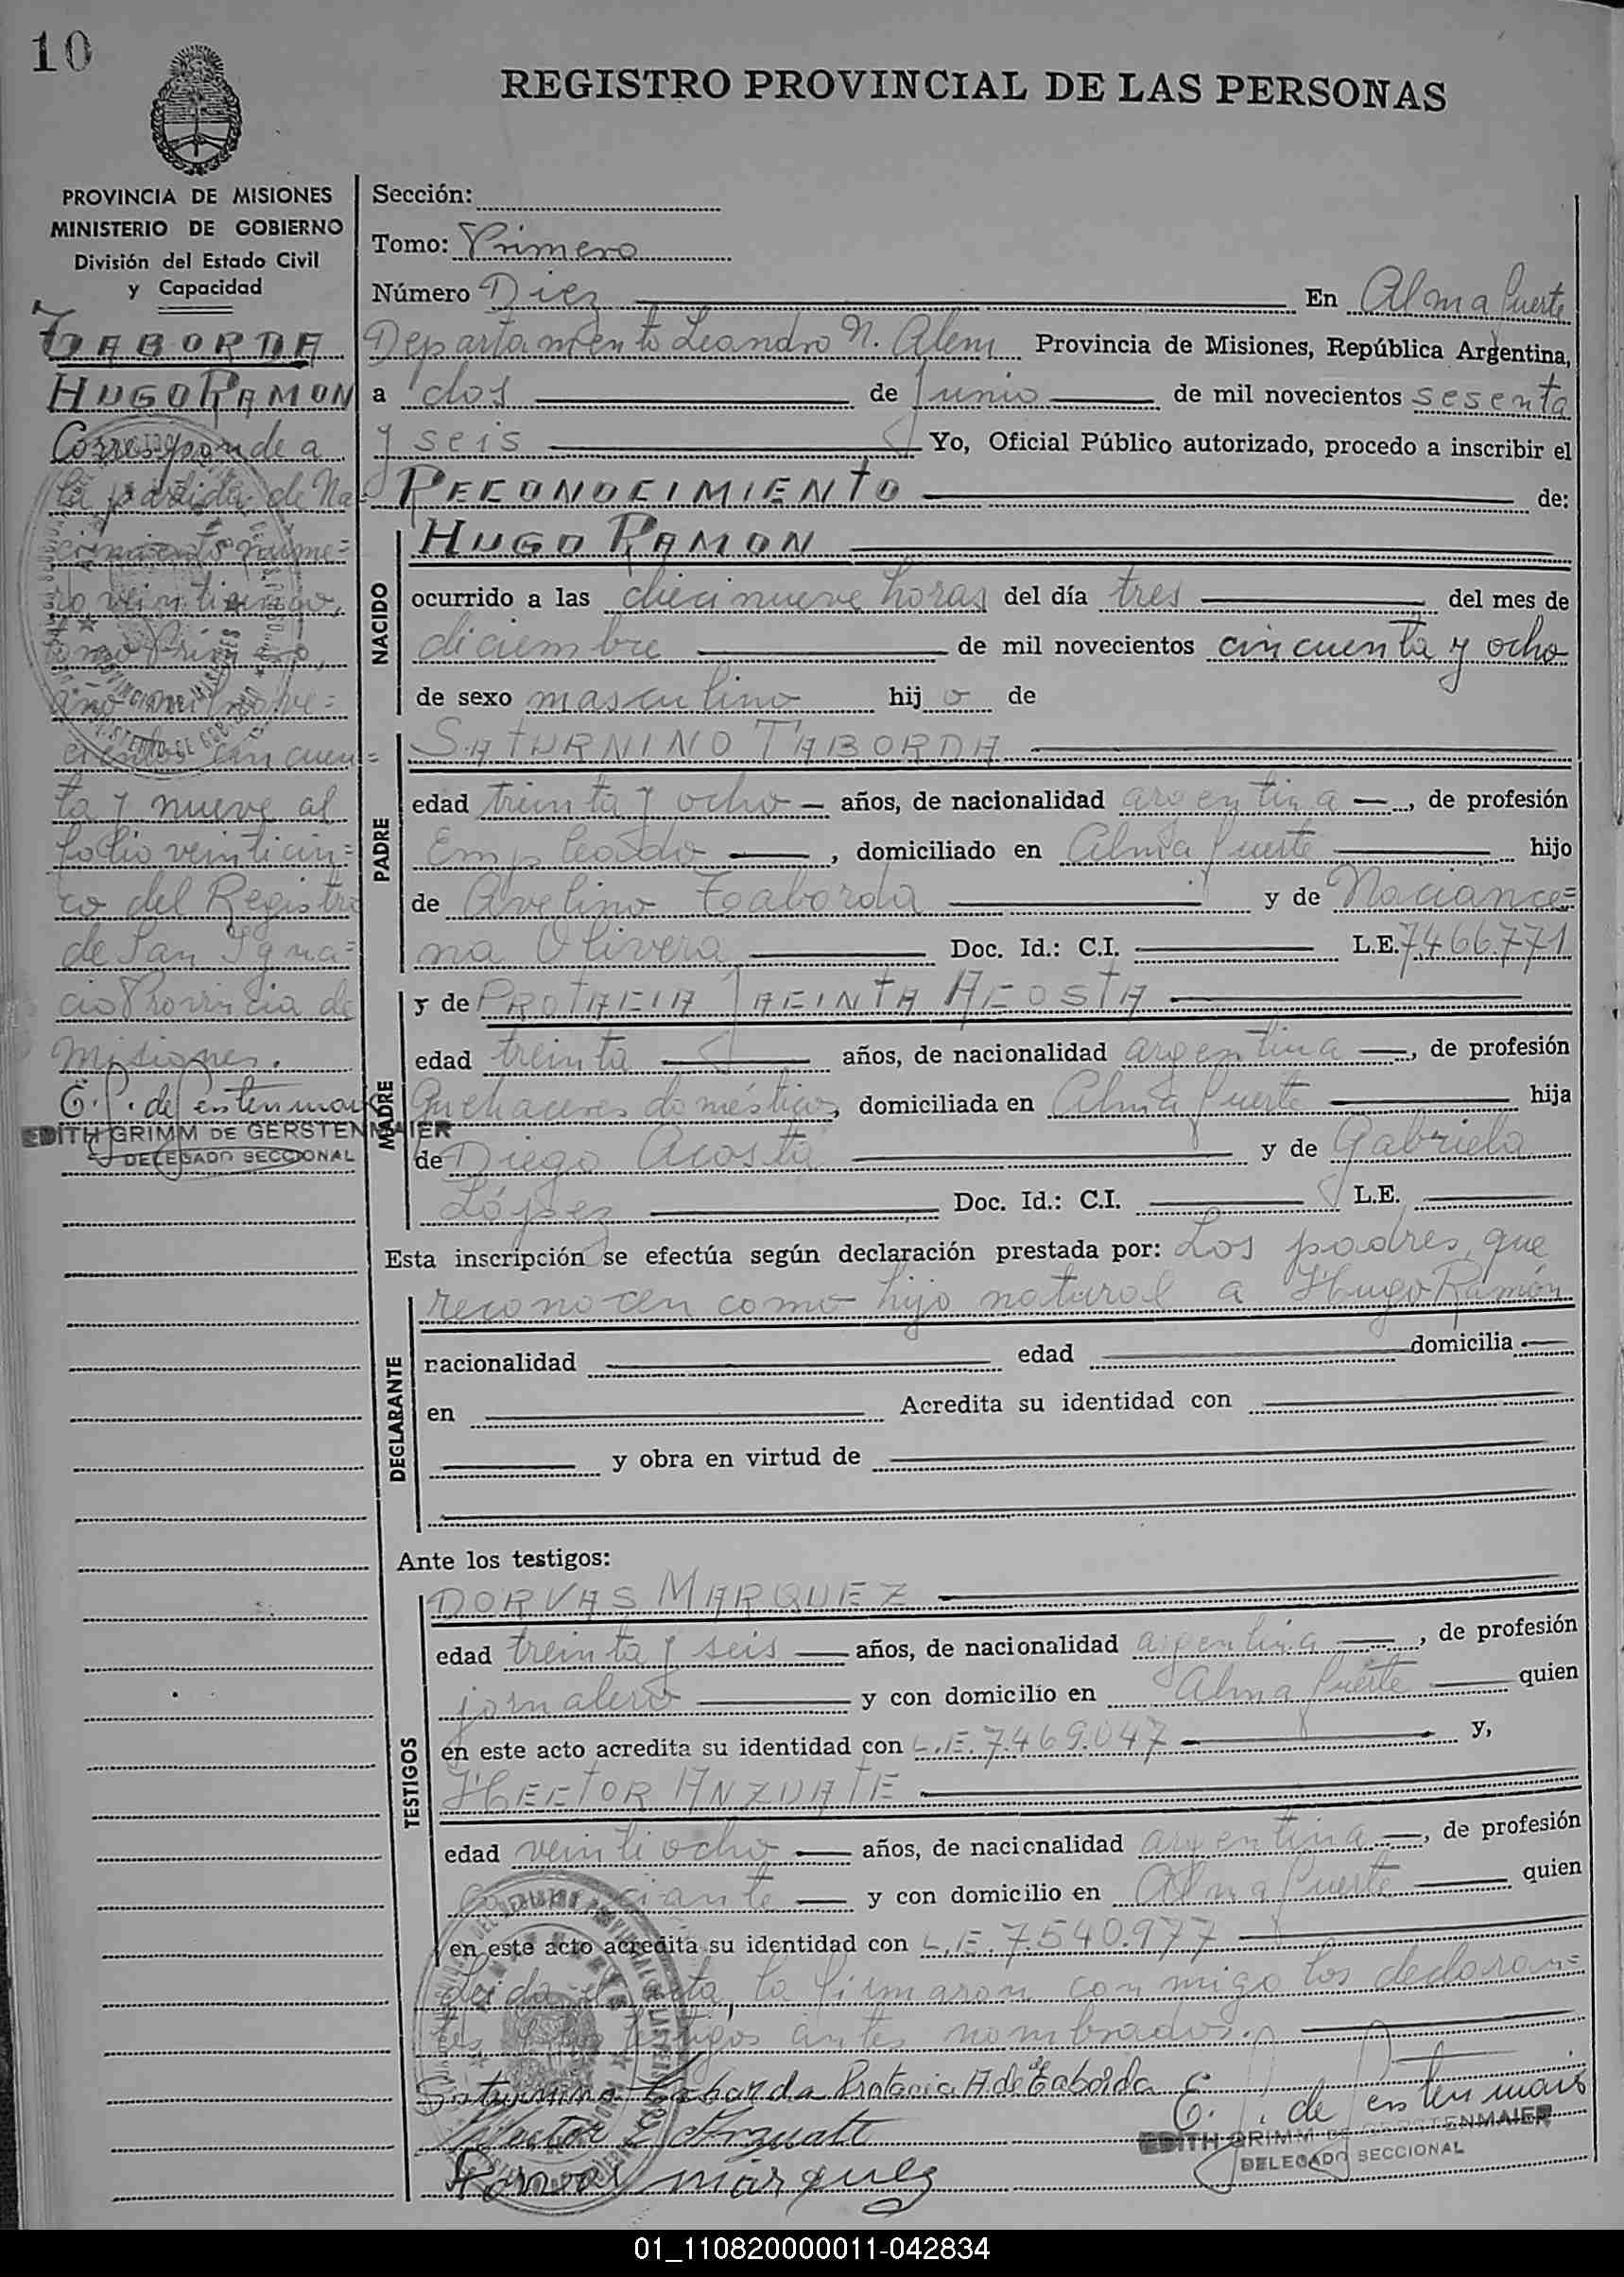 10
REGISTRO PROVINCIAL DE LAS PERSONAS
PROVINCIA DE MISIONES
MINISTERIO DE GOBIERNO
División del Estado Civil
y Capacidad
TABORDA
HUGO RAMON
Corresponde a
la partida de Na-
cimiento núme=
ro veinticinco,
tomo Primero,
año mil nove=
cientos cincuen=
ta y nueve al
folio veinticin=
co del Registro
de San Igna=
cio Provincia de
Misiones.
EDITH GRIMM DE GERSTENMAIER
DELEGADO SECCIONAL
Sección:
Tomo: Primero
Número Diez En Alma fuerte
Departamento Leandro N. Alem Provincia de Misiones, República Argentina,
a dos de Junio de mil novecientos sesenta
y seis Yo, Oficial Público autorizado, procedo a inscribir el
RECONOCIMIENTO de:
NACIDO
HUGO RAMON
ocurrido a las diecinueve horas del día tres del mes de
diciembre de mil novecientos cincuenta y ocho
de sexo masculino hijo de
PADRE
SATURNINO TABORDA
edad treinta y ocho años, de nacionalidad argentina, de profesión
Empleado, domiciliado en Alma fuerte hijo
de Avelino Taborda y de Naciance=
na Olivera Doc. Id.: C.I. L.E. 7.466.771
MADRE
y de PROTACIA JACINTA ACOSTA
edad treinta años, de nacionalidad argentina, de profesión
Quehaceres domésticos, domiciliada en Alma fuerte hija
de Diego Acosta y de Gabriela
López Doc. Id.: C.I. L.E.
Esta inscripción se efectúa según declaración prestada por: Los padres, que
reconocen como hijo natural a Hugo Ramón
DECLARANTE
nacionalidad edad domicilia
en Acredita su identidad con
y obra en virtud de
Ante los testigos:
TESTIGOS
DORVAS MARQUEZ
edad treinta y seis años, de nacionalidad argentina, de profesión
jornalero y con domicilio en Alma fuerte quien
en este acto acredita su identidad con L.E. 7.469.047 y,
HECTOR ANZUATE
edad veintiocho años, de nacionalidad argentina, de profesión
y con domicilio en Alma fuerte quien
en este acto acredita su identidad con L.E. 7.540.977
Leida el acta, la firmaron conmigo los declaran=
tes y los testigos antes nombrados.
Saturnino Taborda Protacia A. de Taborda
Hector E Anzuate
EDITH GRIMM DE GERSTENMAIER
DELEGADO SECCIONAL
Dorvas marquez
01_110820000011-042834